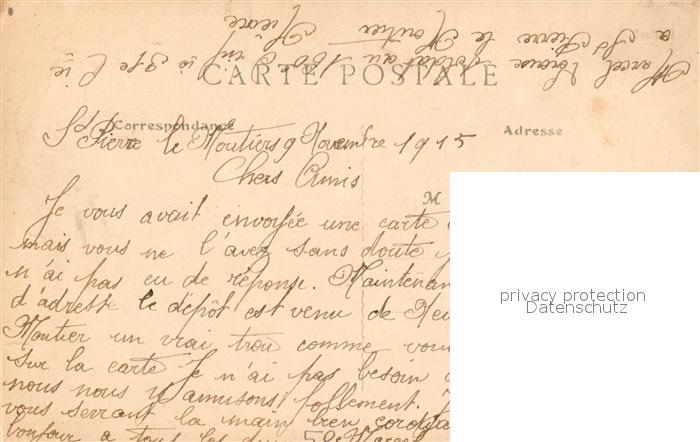 Marcel Soldat au 160e d'inf 31e Cie
à St Pierre le Moutier Nièvre
CARTE POSTALE
Correspondance
Adresse
St Pierre le Moutiers 9 Novembre 1915
Chers Amis
M
Je vous avait envoyée une carte
mais vous ne l'avez sans doute
n'ai pas eu de réponse. Maintenan
d'adresse le dépôt est venu de
Moutier un vrai trou comme vou
sur la carte Je n'ai pas besoin
nous nous y amusons follement.
vous serrant la main bien cordia
bonjour a tous les
privacy protection
Datenschutz